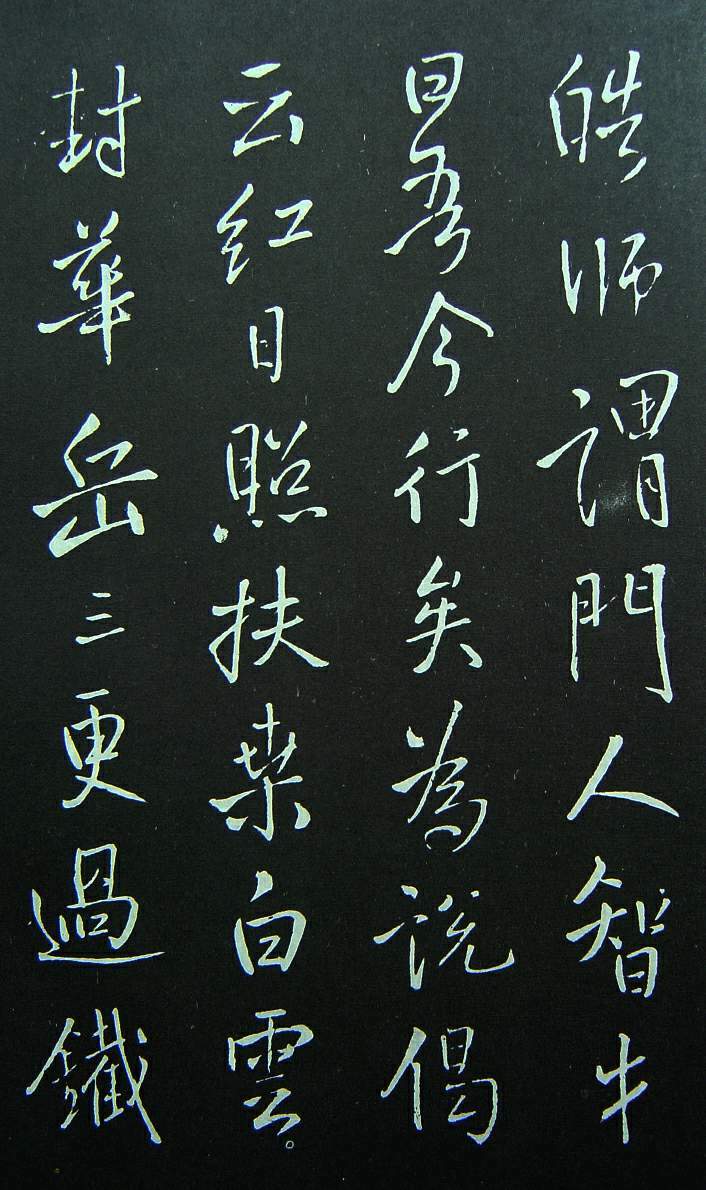 皓師謂門人智才
曰吾今行矣為說偈
云红日照扶桒白雲
封華岳三更過鐵